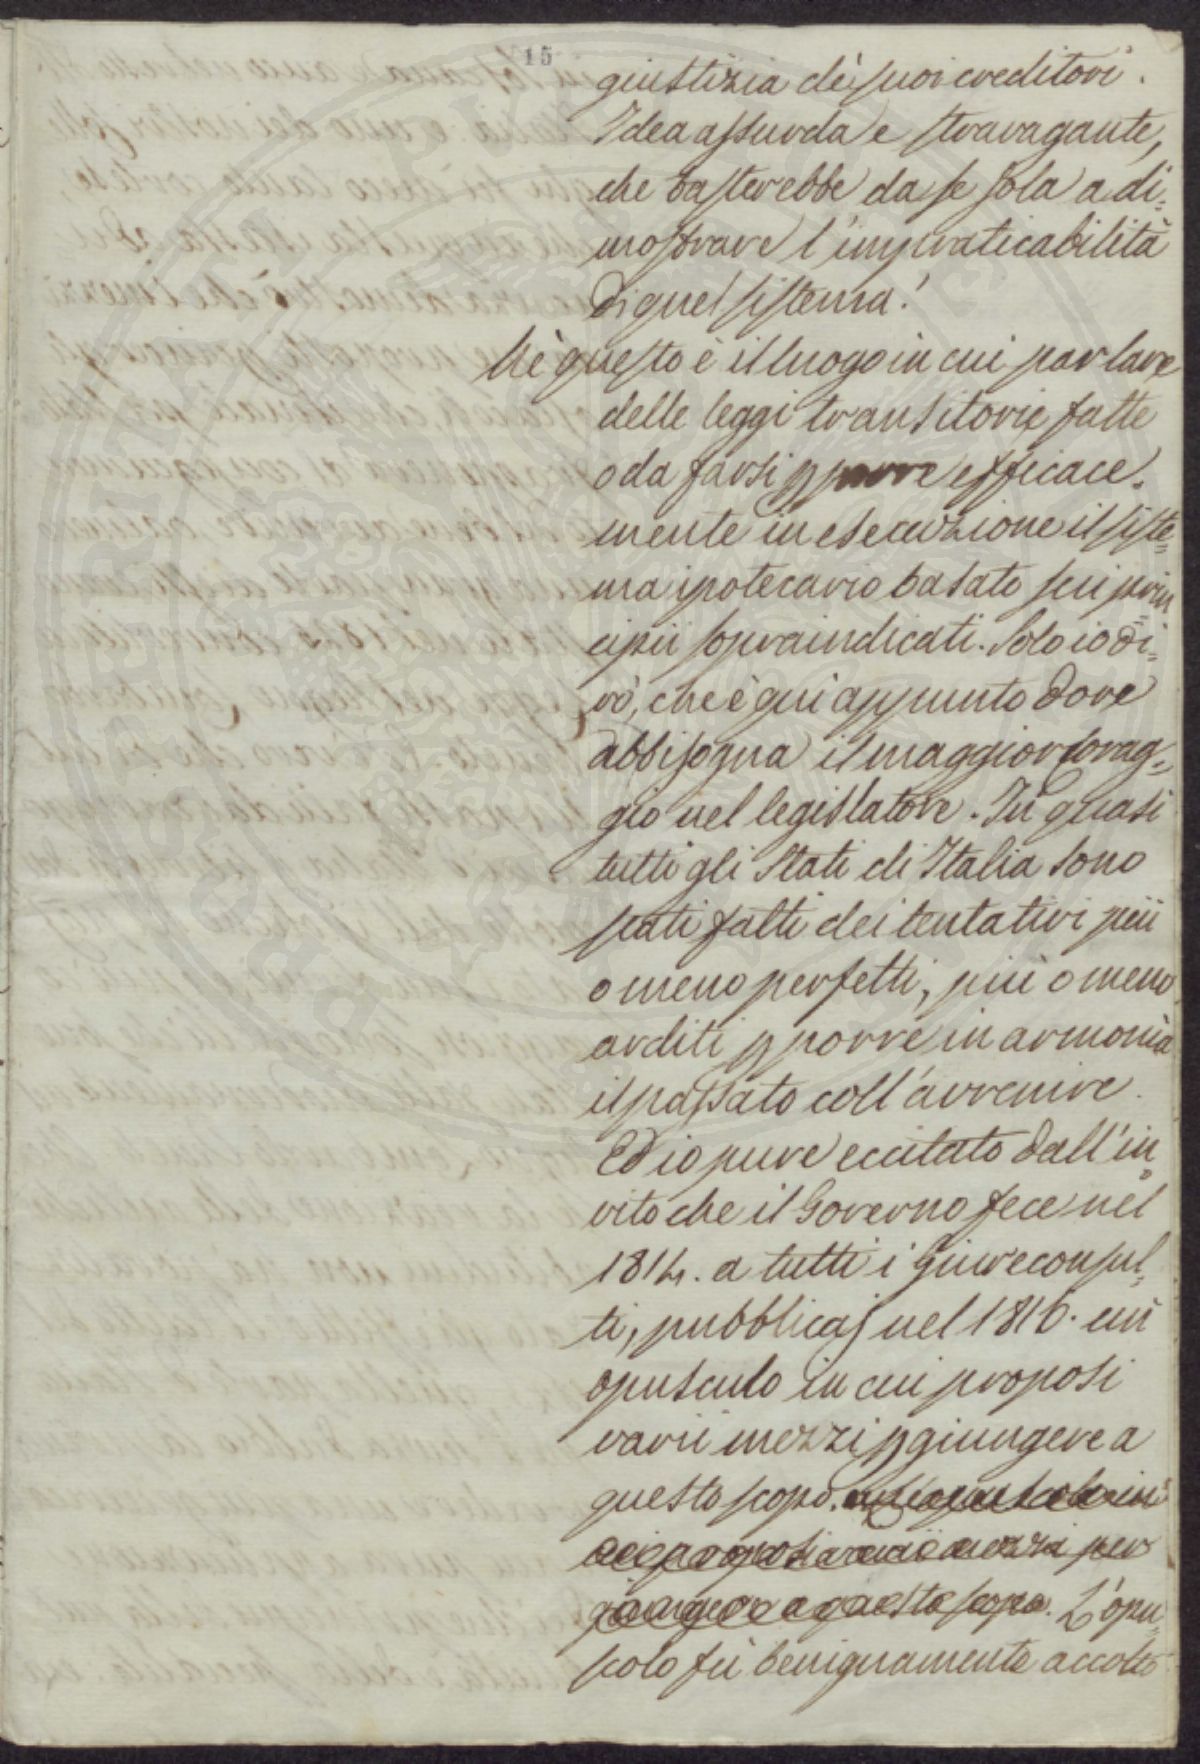 15
giustizia de' suoi creditori.
Idea assurda e stravagante,
che basterebbe da se sola a di-
mostrare l'impraticabilità
di quel sistema!
Nè questo è il luogo in cui parlare
delle leggi transitorie fatte
o da farsi p porre efficace-
mente in esecuzione il siste-
ma ipotecario basato sui prin
cipii sopraindicati. Solo io di-
rò, che è qui appunto dove
abbisogna il maggior corag-
gio nel legislatore. In quasi
tutti gli Stati di Italia sono
stati fatti dei tentativi più
o meno perfetti, più o meno
arditi p porre in armonia
il passato coll'avvenire.
Ed io pure eccitato dall'in-
vito che il Governo fece nel
1814. a tutti i giureconsul-
ti, pubblicai nel 1816. un
opusculo in cui proposi
varii mezzi p giungere a
questo scopo. un opusculo in
cui proposi varii mezzi per
giungere a questo scopo. L'opu-
scolo fù benignamente accolto